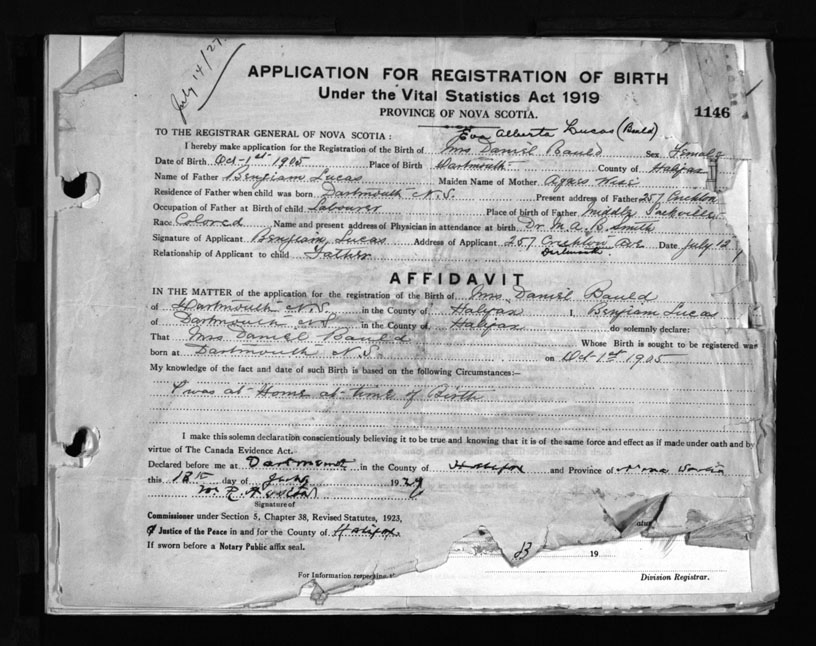 July 14/27
APPLICATION FOR REGISTRATION OF BIRTH
Under the Vital Statistics Act 1919
PROVINCE OF NOVA SCOTIA.
1146
Eva Alberta Lucas (Bauld)
TO THE REGISTRAR GENERAL OF NOVA SCOTIA:
I hereby make application for the Registration of the Birth of Mrs Daniel Bauld Sex Female
Date of Birth Oct-1st 1905 Place of Birth Dartmouth County of Halifax
Name of Father Benjiam Lucas Maiden Name of Mother Agnes
Residence of Father when child was born Dartmouth N.S. Present address of Father 257 Crichton
Occupation of Father at Birth of child Labourer Place of birth of Father Middle Sackville
Race Colored Name and present address of Physician in attendance at birth Dr. M.A.B. Smith
Signature of Applicant Benjiam Lucas Address of Applicant 257 Crichton Ave Date July 12
Dartmouth
Relationship of Applicant to child Father
AFFIDAVIT
IN THE MATTER of the application for the registration of the Birth of Mrs Daniel Bauld
of Dartmouth N.S. in the County of Halifax I, Benjiam Lucas
of Dartmouth N.S. in the County of Halifax do solemnly declare:
That Mrs Daniel Bauld Whose Birth is sought to be registered was
born at Dartmouth N.S. on Oct 1st 1905
My knowledge of the fact and date of such Birth is based on the following Circumstances:—
I was at Home at time of Birth
I make this solemn declaration conscientiously believing it to be true and knowing that it is of the same force and effect as if made under oath and by
virtue of The Canada Evidence Act.
Declared before me at Dartmouth in the County of Halifax and Province of Nova Scotia
this 12th day of July 1927
Signature of
Commissioner under Section 5, Chapter 38, Revised Statutes, 1923,
Justice of the Peace in and for the County of Halifax
If sworn before a Notary Public affix seal.
19
For Information respecting
Division Registrar.